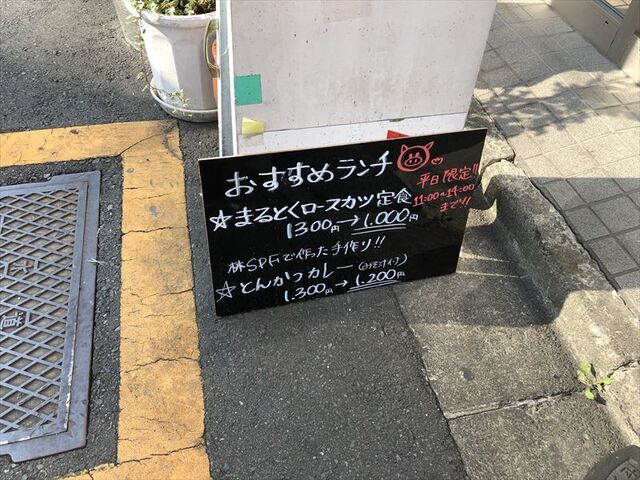 おすすめランチ
平日限定!!
11:00~14:00
まで!!
☆まるとくロースカツ定食
1300円→1,000円
林SPFで作った手作り!!
☆とんかつカレー
1.300円→1.200円
道